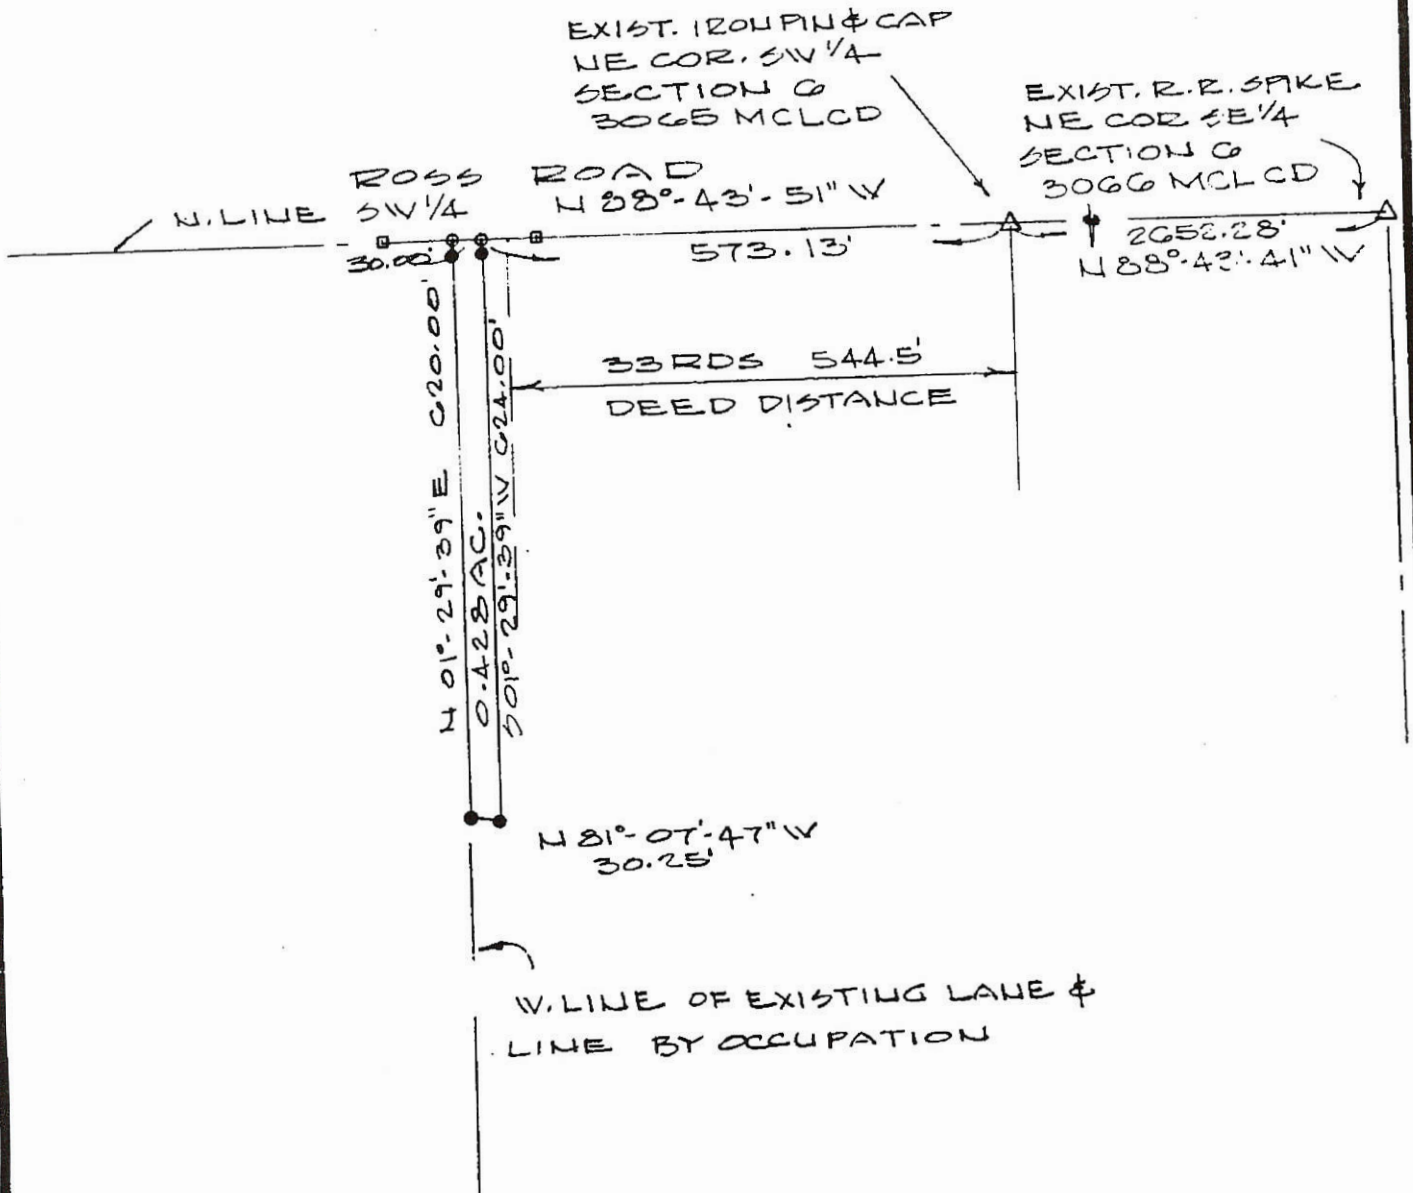 EXIST. IRON PIN & CAP
NE COR. SW 1/4
SECTION 6
3065 MCLCD
EXIST. R.R. SPIKE
NE COR SE 1/4
SECTION 6
3066 MCLCD
ROSS ROAD
N. LINE SW 1/4
N 88°-43'-51" W
30.00'
573.13'
2652.28'
N 88°-43'-41" W
33 RDS 544.5'
DEED DISTANCE
N 01°-29'-39" E 620.00'
0.428 AC.
S 01°-29'-39" W 624.00'
N 81°-07'-47" W
30.25'
W. LINE OF EXISTING LANE &
LINE BY OCCUPATION